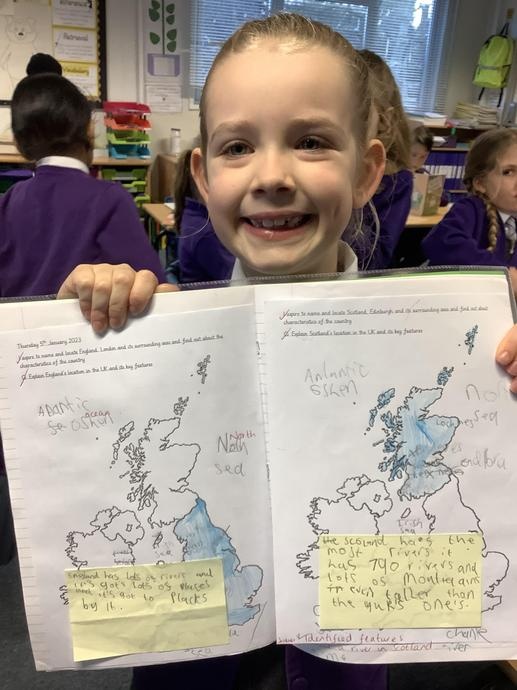 Retrieval
Vocabulary
Thursday 5th January 2023
I aspire to name and locate England, London and its surrounding seas and find out about the
characteristics of the country
Explain England's location in the UK and its key features
Adantic
ocean
oshen
North
Noth
sea
sea
England has lots of rivers and
it's got lots of places
and it's got 10 placks
by it.
sea
I aspire to name and locate Scotland, Edinburgh and its surrounding seas and find out about
characteristics of the country
Explain Scotland's location in the UK and its key features
Anlantic
oshen
Nor
sea
Irish
sea
the scoland hass the
most rivers it
has 790 rivers and
lots os
even taller than
the yuks one's.
Identified features
chanle
a river in scotland
river